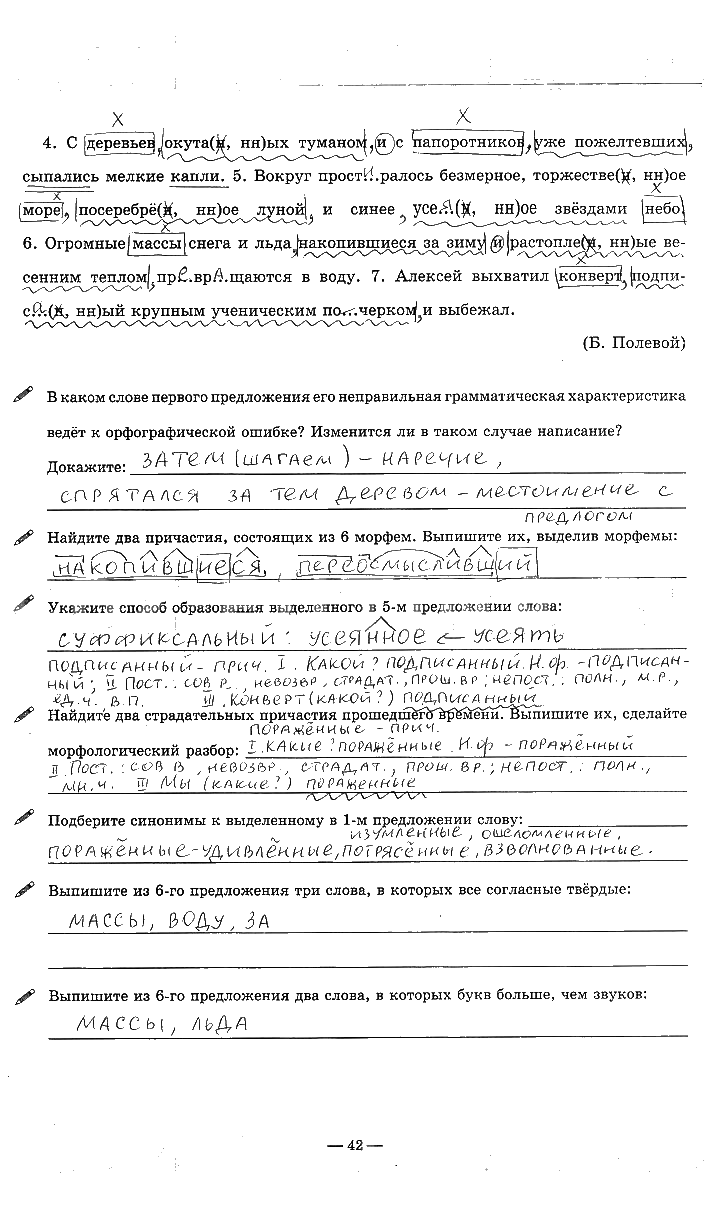 Х Х
4. С деревьев, окута(н, нн)ых туманом, и с папоротников, уже пожелтевших,
сыпались мелкие капли. 5. Вокруг простИ.ралось безмерное, торжестве(н, нн)ое
х х
море, посеребрё(н, нн)ое луной, и синее, усеЯ(н, нн)ое звёздами небо
6. Огромные массы снега и льда, накопившиеся за зиму и растопле(н, нн)ые ве-
х
сенним теплом, прЕ.врА.щаются в воду. 7. Алексей выхватил конверт, подпи-
сА.(н, нн)ый крупным ученическим по...черком, и выбежал.
(Б. Полевой)
В каком слове первого предложения его неправильная грамматическая характеристика
ведёт к орфографической ошибке? Изменится ли в таком случае написание?
Докажите: ЗАТЕМ (ШАГАЕМ) – НАРЕЧИЕ,
СПРЯТАЛСЯ ЗА ТЕМ ДЕРЕВОМ – МЕСТОИМЕНИЕ С
ПРЕДЛОГОМ
Найдите два причастия, состоящих из 6 морфем. Выпишите их, выделив морфемы:
НАКОПИВШИЕСЯ, ПЕРЕОСМЫСЛИВШИЙ
Укажите способ образования выделенного в 5-м предложении слова:
СУФФИКСАЛЬНЫЙ: УСЕЯННОЕ ← УСЕЯТЬ
ПОДПИСАННЫЙ – ПРИЧ. I. КАКОЙ? ПОДПИСАННЫЙ. Н.ф. – ПОДПИСАН-
НЫЙ; II ПОСТ.: СОВ Р., НЕВОЗВР, СТРАДАТ., ПРОШ. ВР; НЕПОСТ.: ПОЛН., М.Р.,
ЕД.Ч. В.П. III. КОНВЕРТ (КАКОЙ?) ПОДПИСАННЫЙ
Найдите два страдательных причастия прошедшего времени. Выпишите их, сделайте
ПОРАЖЁННЫЕ – ПРИЧ.
морфологический разбор: I. КАКИЕ? ПОРАЖЁННЫЕ. Н.ф – ПОРАЖЁННЫЙ
II. ПОСТ.: СОВ В, НЕВОЗВР, СТРАДАТ., ПРОШ. ВР.; НЕПОСТ.: ПОЛН.,
МН.Ч. III МЫ (КАКИЕ?) ПОРАЖЕННЫЕ
Подберите синонимы к выделенному в 1-м предложении слову:
ИЗУМЛЕННЫЕ, ОШЕЛОМЛЕННЫЕ,
ПОРАЖЁННЫЕ – УДИВЛЁННЫЕ, ПОТРЯСЁННЫЕ, ВЗВОЛНОВАННЫЕ.
Выпишите из 6-го предложения три слова, в которых все согласные твёрдые:
МАССЫ, ВОДУ, ЗА
Выпишите из 6-го предложения два слова, в которых букв больше, чем звуков:
МАССЫ, ЛЬДА
— 42 —